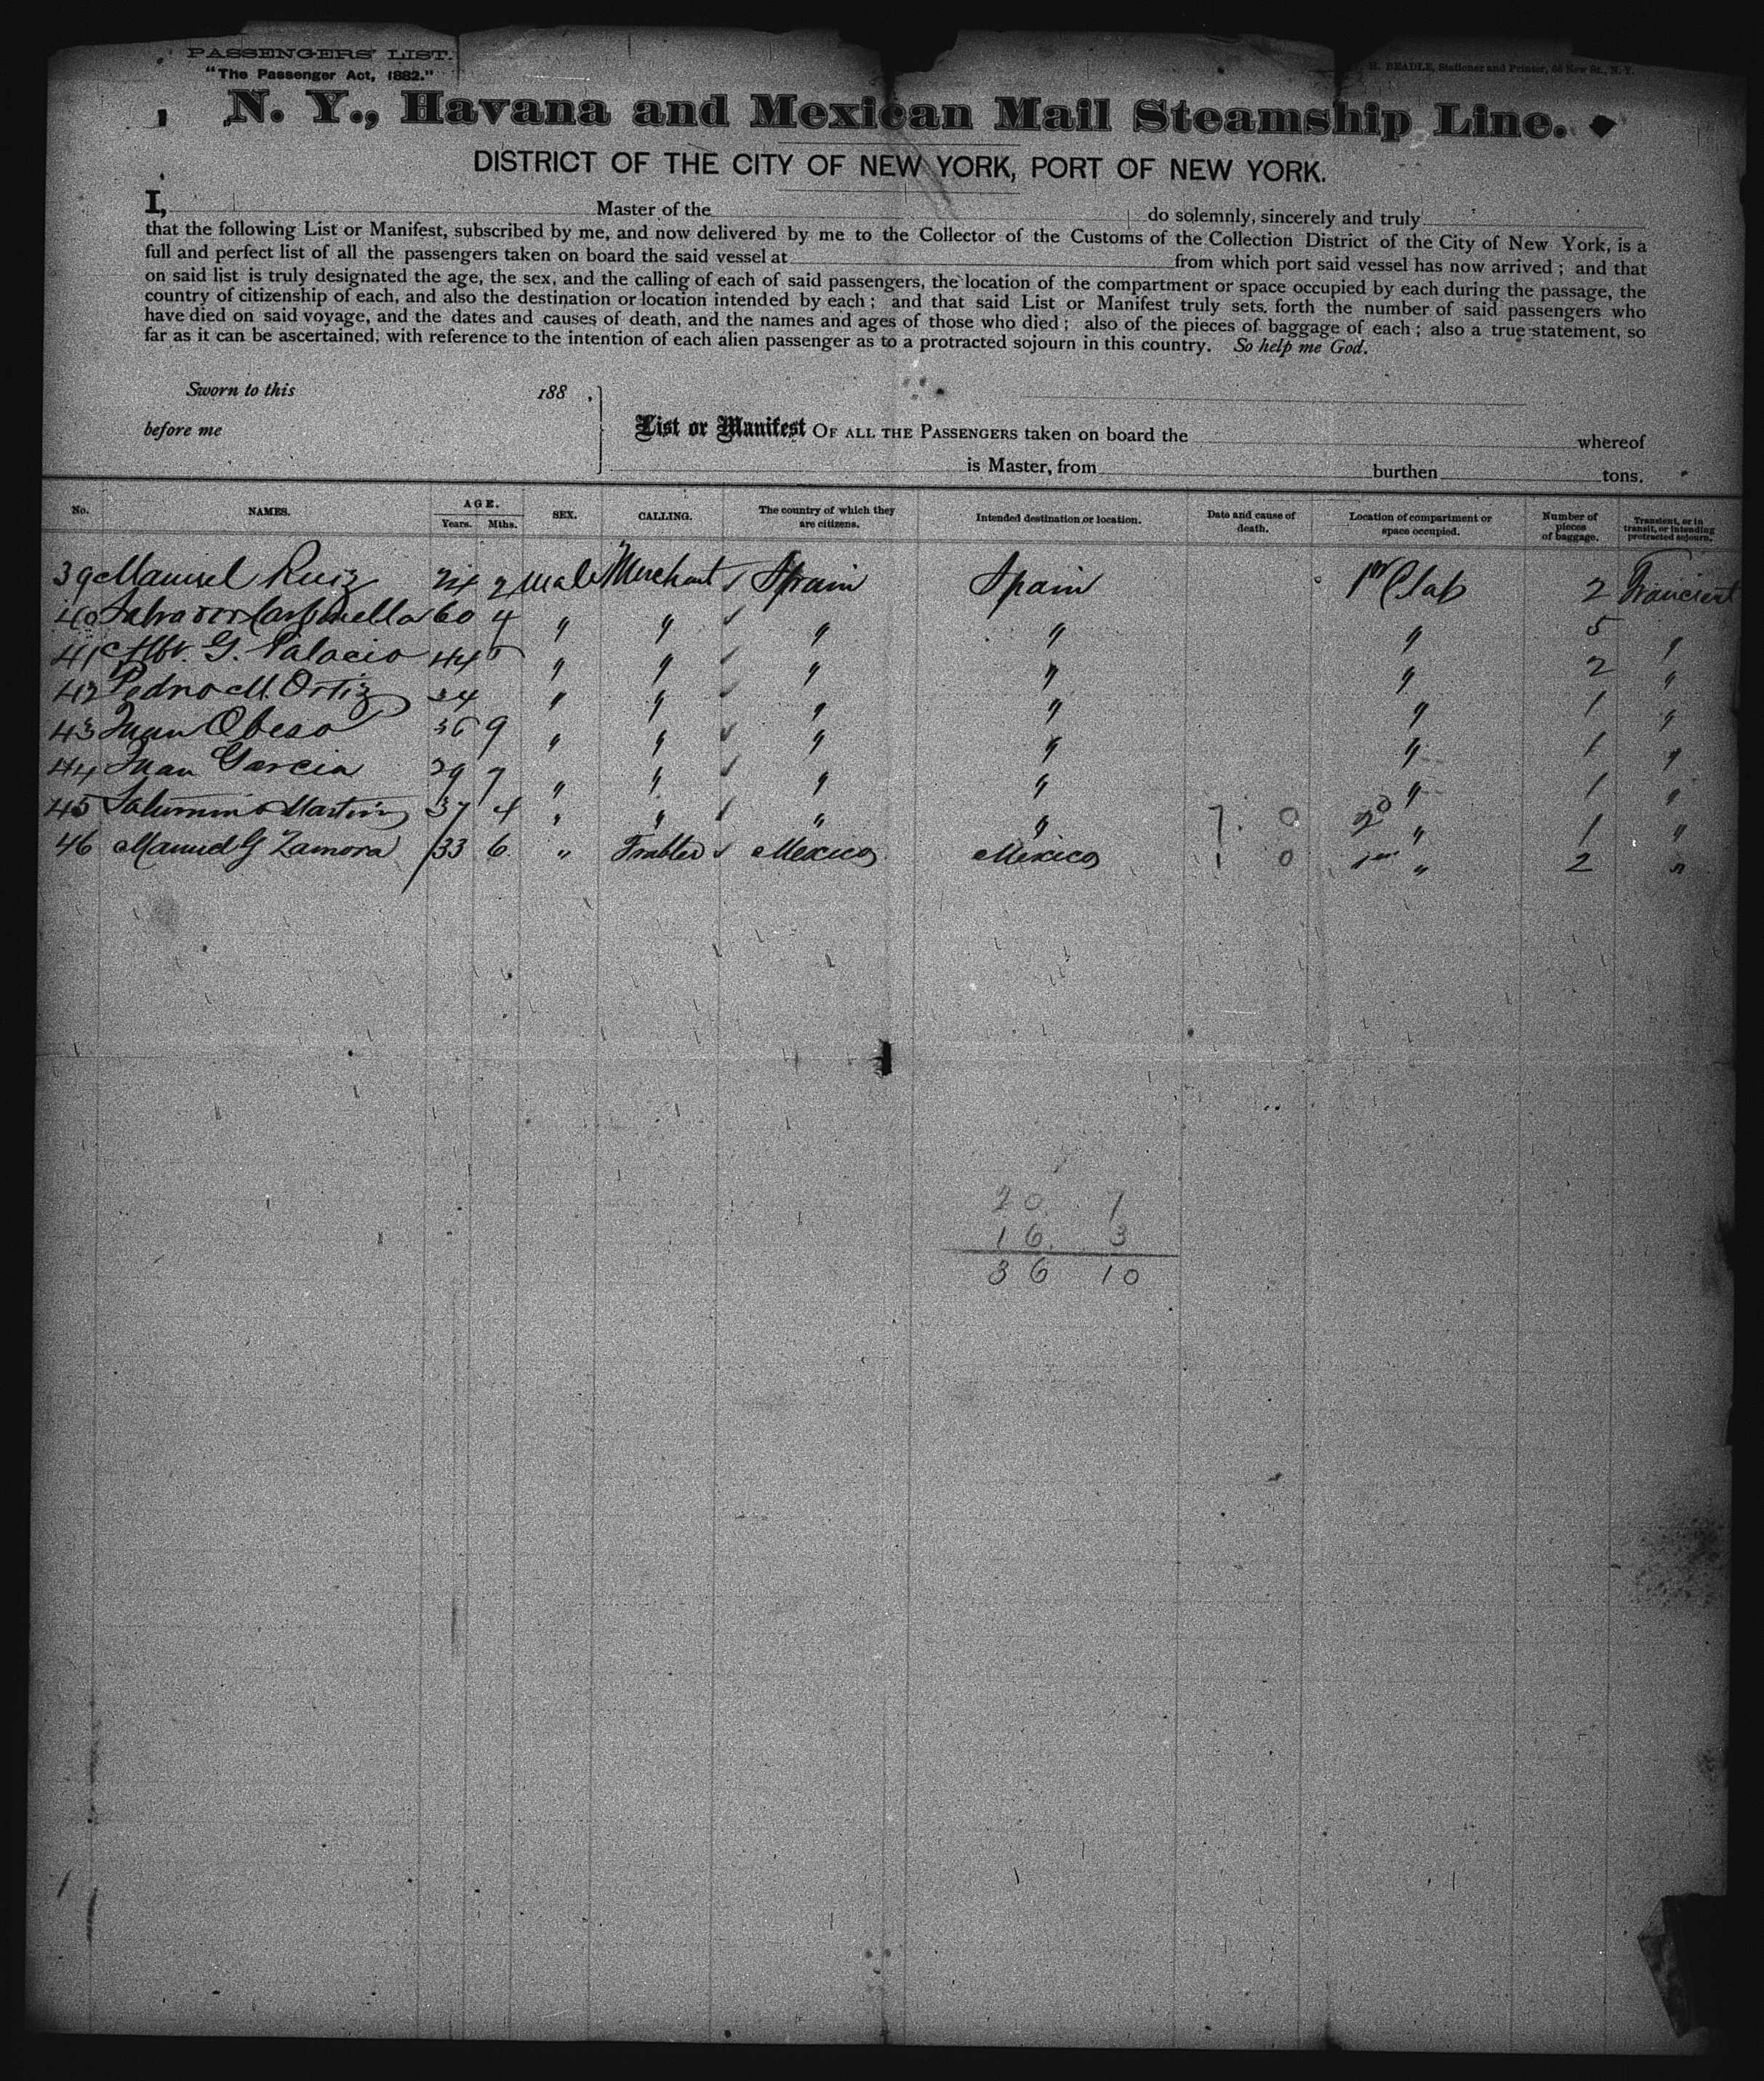 PASSENGERS' LIST.
"The Passenger Act, 1882."
H. BEADLE, Stationer and Printer, 66 New St., N. Y.
N. Y., Havana and Mexican Mail Steamship Line.
DISTRICT OF THE CITY OF NEW YORK, PORT OF NEW YORK.
I, Master of the do solemnly, sincerely and truly
that the following List or Manifest, subscribed by me, and now delivered by me to the Collector of the Customs of the Collection District of the City of New York, is a
full and perfect list of all the passengers taken on board the said vessel at from which port said vessel has now arrived; and that
on said list is truly designated the age, the sex, and the calling of each of said passengers, the location of the compartment or space occupied by each during the passage, the
country of citizenship of each, and also the destination or location intended by each; and that said List or Manifest truly sets forth the number of said passengers who
have died on said voyage, and the dates and causes of death, and the names and ages of those who died; also of the pieces of baggage of each; also a true statement, so
far as it can be ascertained, with reference to the intention of each alien passenger as to a protracted sojourn in this country. So help me God.
Sworn to this 188 .
before me
List or Manifest OF ALL THE PASSENGERS taken on board the whereof
is Master, from burthen tons.
No. NAMES. AGE. Years. Mths. SEX. CALLING. The country of which they are citizens. Intended destination or location. Date and cause of death. Location of compartment or space occupied. Number of pieces of baggage. Transient, or in transit, or intending protracted sojourn.
39 Manuel Ruiz 24 2 Male Merchant Spain Spain 1st Clas 2 Trancient
40 Salvador 60 4 " " " " " 5 "
41 G. Palacio 44 5 " " " " " 2 "
42 Pedro M. Ortiz 34 " " " " " 1 "
43 Juan Obeso 36 9 " " " " " 1 "
44 Juan Garcia 29 7 " " " " " 1 "
45 Martin 37 4 " " " " 7. 0 2d " 1 "
46 Manuel G Zamora 33 6 " Mexico Mexico 1 0 " 2 "
20 7
16 3
36 10